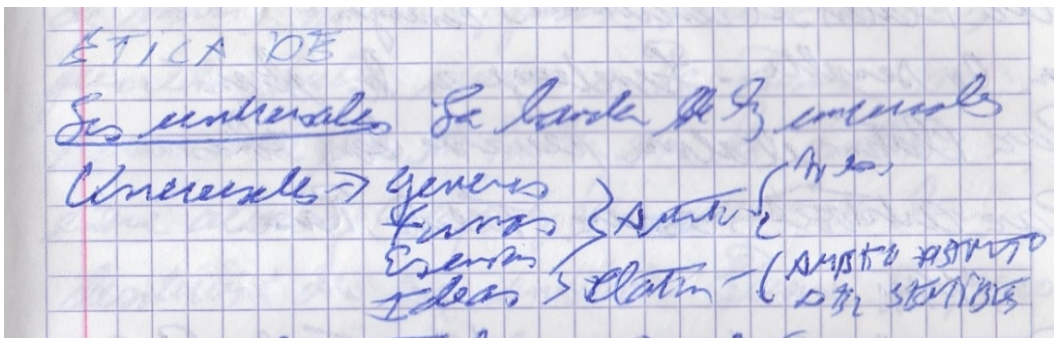 ETICA DE
Los universales La banda de los universales
Universales → géneros
Formas } Arist
Esencias
Ideas > Platón - ( AMBITO DISTINTO
DEL SENSIBLE